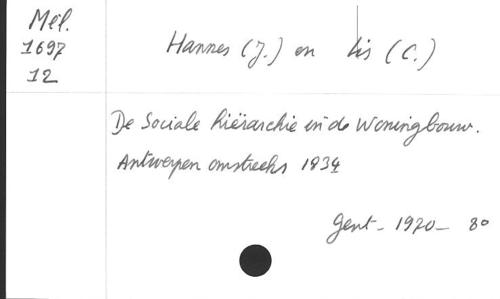 Mél.
1697
12
Hannes (J.) en Lis (C.)
De Sociale hiërarchie in de Woningbouw.
Antwerpen omstreeks 1834
Gent - 1970 - 8°